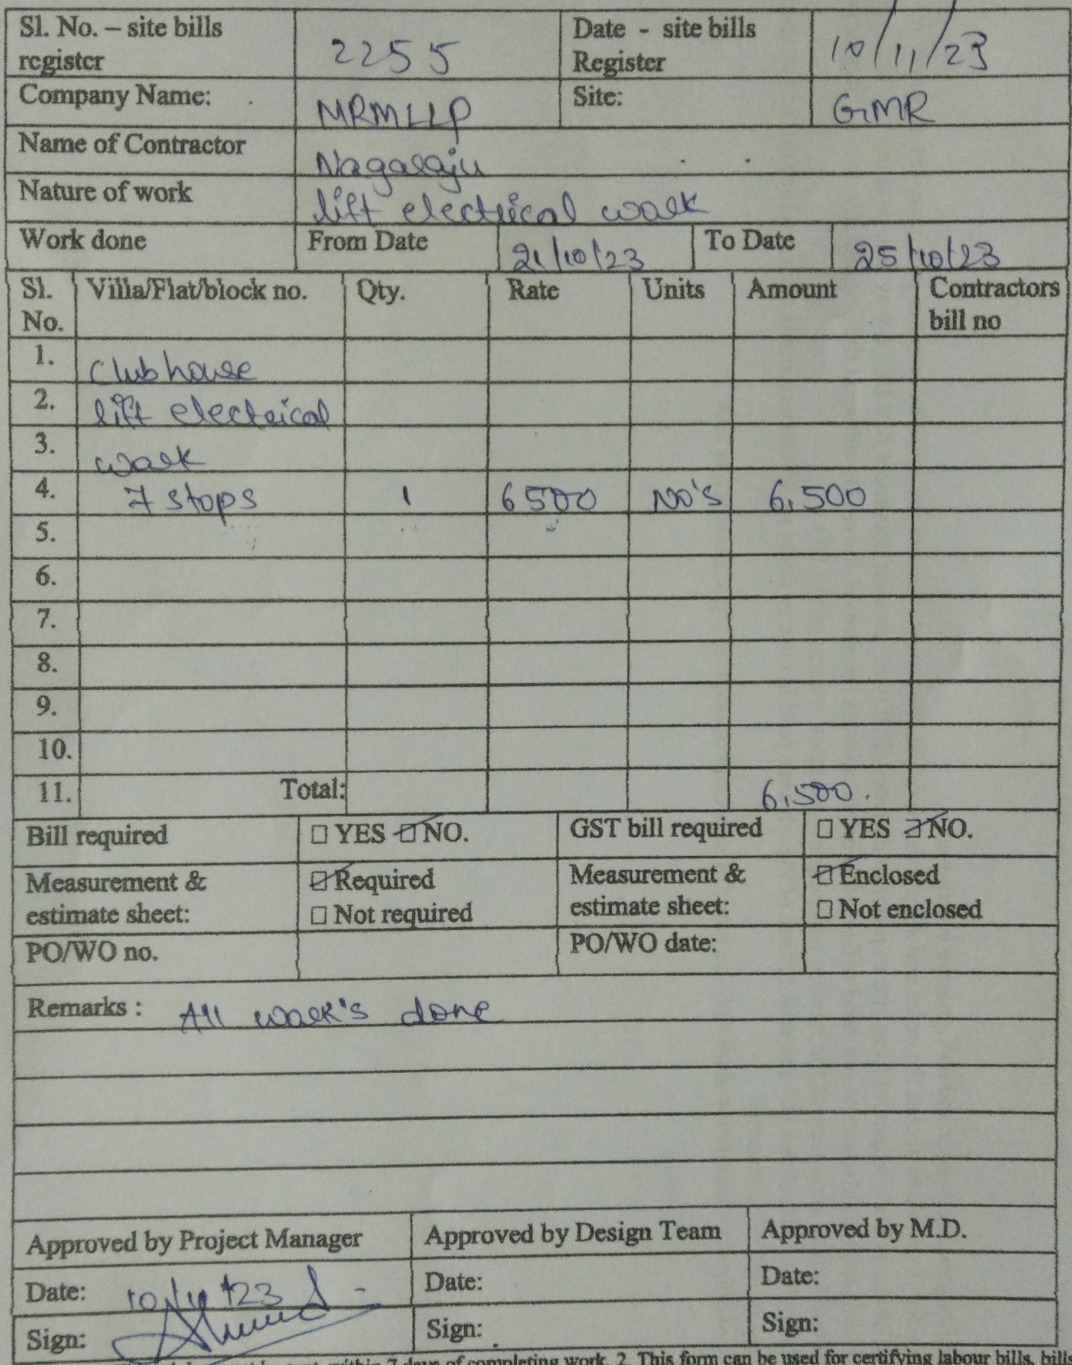 Sl. No. – site bills register 2255 Date - site bills Register 10/11/23
Company Name: MRMLLP Site: GMR
Name of Contractor Nagaraju
Nature of work lift electrical work
Work done From Date 21/10/23 To Date 25/10/23
Sl. No. Villa/Flat/block no. Qty. Rate Units Amount Contractors bill no
1. Clubhouse
2. lift electrical
3. work
4. 7 stops 1 6500 No's 6,500
5.
6.
7.
8.
9.
10.
11. Total: 6,500.
Bill required ☐ YES ☑ NO. GST bill required ☐ YES ☑ NO.
Measurement & estimate sheet: ☑ Required ☐ Not required Measurement & estimate sheet: ☑ Enclosed ☐ Not enclosed
PO/WO no. PO/WO date:
Remarks : All work's done
Approved by Project Manager Approved by Design Team Approved by M.D.
Date: 10/11/23 Date: Date:
Sign: Sign: Sign:
within 7 days of completing work. 2. This form can be used for certifying labour bills, bills